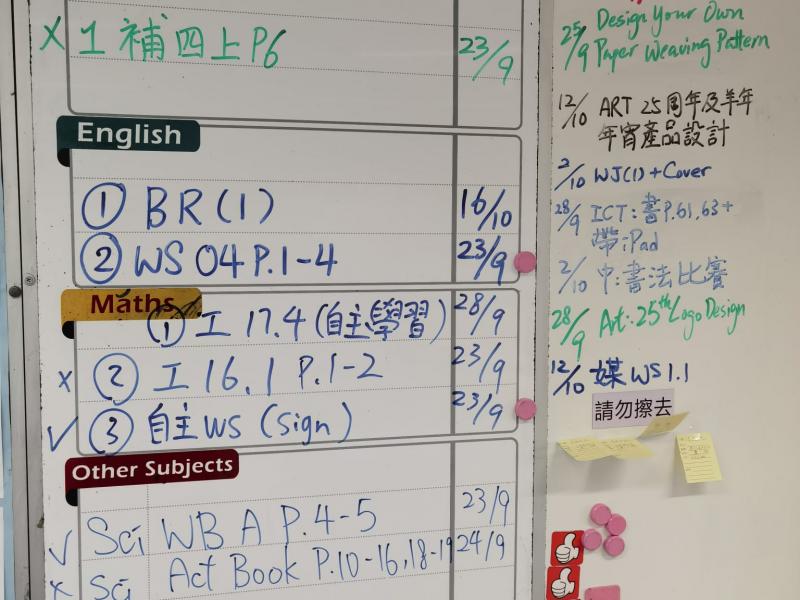 X 1 補四上P6 23/9
English
① BR(1) 16/10
② WS 04 P.1-4 23/9
Maths
① 工 17.4 (自主學習) 28/9
x ② 工 16.1 P.1-2 23/9
✓ ③ 自主WS (sign) 23/9
Other Subjects
✓ Sci WB A P.4-5 23/9
x Sci Act Book P.10-16,18-19 24/9
25/9 Design Your Own
Paper Weaving Pattern
12/10 ART 25周年及羊年
年宵產品設計
2/10 WJ(1)+Cover
28/9 ICT:書P.61,63+
帶iPad
2/10 中:書法比賽
28/9 Art:25th Logo Design
12/10 媒 WS 1.1
請勿擦去